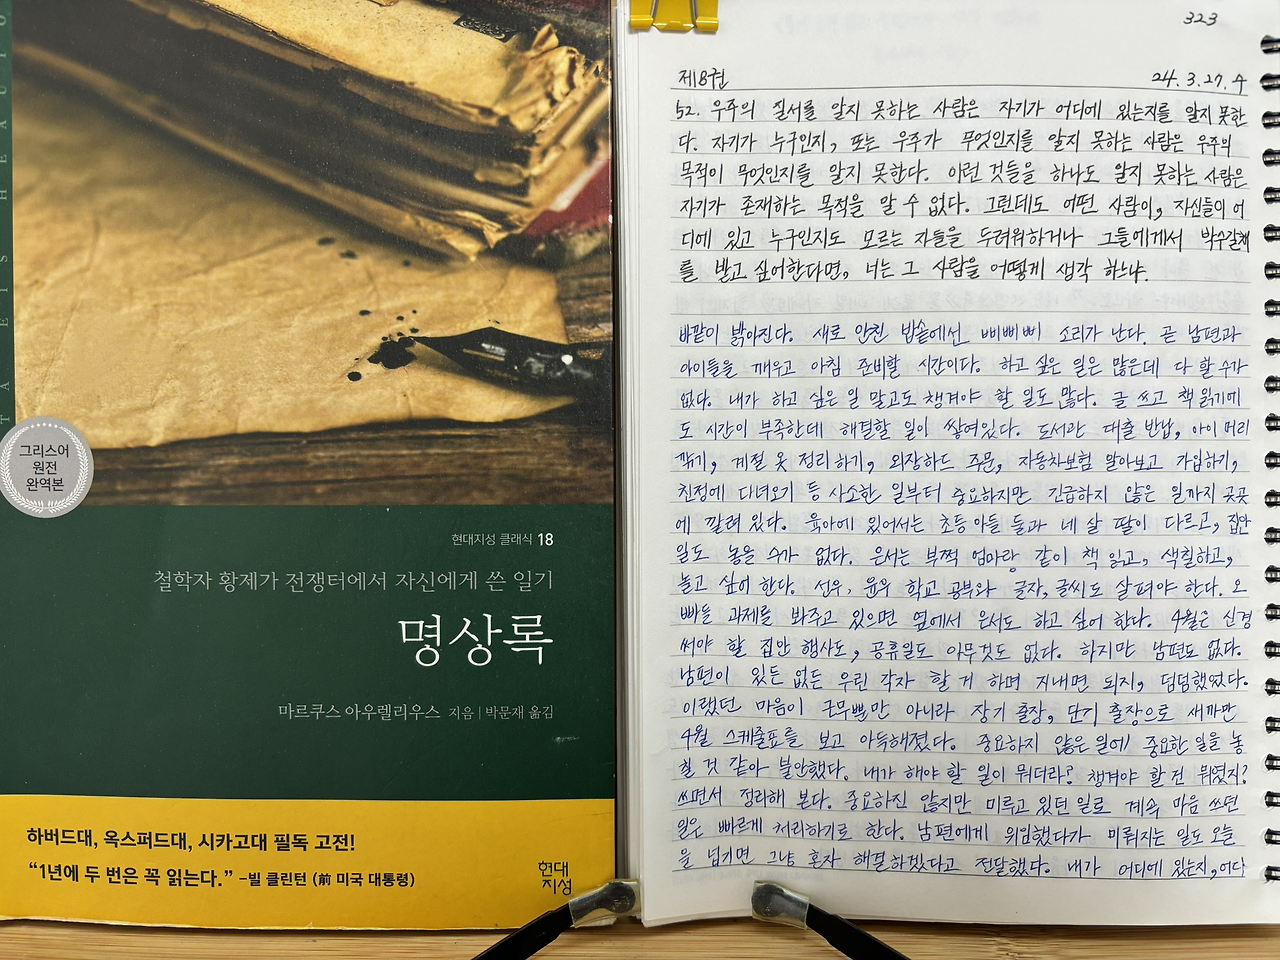 TAEIS HEAUTO
그리스어
원전
완역본
현대지성 클래식 18
철학자 황제가 전쟁터에서 자신에게 쓴 일기
명상록
마르쿠스 아우렐리우스 지음 | 박문재 옮김
하버드대, 옥스퍼드대, 시카고대 필독 고전!
“1년에 두 번은 꼭 읽는다.” –빌 클린턴 (前 미국 대통령)
현대
지성
323
제8권 24.3.27.수
52. 우주의 질서를 알지 못하는 사람은 자기가 어디에 있는지를 알지 못한
다. 자기가 누구인지, 또는 우주가 무엇인지를 알지 못하는 사람은 우주의
목적이 무엇인지를 알지 못한다. 이런 것들을 하나도 알지 못하는 사람은
자기가 존재하는 목적을 알 수 없다. 그런데도 어떤 사람이, 자신들이 어
디에 있고 누구인지도 모르는 자들을 두려워하거나 그들에게서 박수갈채
를 받고 싶어한다면, 너는 그 사람을 어떻게 생각 하느냐.
바깥이 밝아진다. 새로 안친 밥솥에선 삐삐삐 소리가 난다. 곧 남편과
아이들을 깨우고 아침 준비할 시간이다. 하고 싶은 일은 많은데 다 할 수가
없다. 내가 하고 싶은 일 말고도 챙겨야 할 일도 많다. 글 쓰고 책 읽기에
도 시간이 부족한데 해결할 일이 쌓여있다. 도서관 대출 반납, 아이 머리
깎기, 계절 옷 정리하기, 외장하드 주문, 자동차보험 알아보고 가입하기,
친정에 다녀오기 등 사소한 일부터 중요하지만 긴급하지 않은 일까지 곳곳
에 깔려 있다. 육아에 있어서는 초등 아들 둘과 네 살 딸이 다르고, 집안
일도 놓을 수가 없다. 은서는 부쩍 엄마랑 같이 책 읽고, 색칠하고,
놀고 싶어 한다. 선우, 윤우 학교 공부와 글자, 글씨도 살펴야 한다. 오
빠들 과제를 봐주고 있으면 옆에서 은서도 하고 싶어 한다. 4월은 신경
써야 할 집안 행사도, 공휴일도 아무것도 없다. 하지만 남편도 없다.
남편이 있든 없든 우린 각자 할 거 하며 지내면 되지, 덤덤했었다.
이랬던 마음이 근무뿐만 아니라 장기 출장, 단기 출장으로 새까만
4월 스케줄표를 보고 아득해졌다. 중요하지 않은 일에 중요한 일을 놓
칠 것 같아 불안했다. 내가 해야 할 일이 뭐더라? 챙겨야 할 건 뭐였지?
쓰면서 정리해 본다. 중요하진 않지만 미루고 있던 일로 계속 마음 쓰던
일은 빠르게 처리하기로 한다. 남편에게 위임했다가 미뤄지는 일도 오늘
을 넘기면 그냥 혼자 해결하겠다고 전달했다. 내가 어디에 있는지, 어다